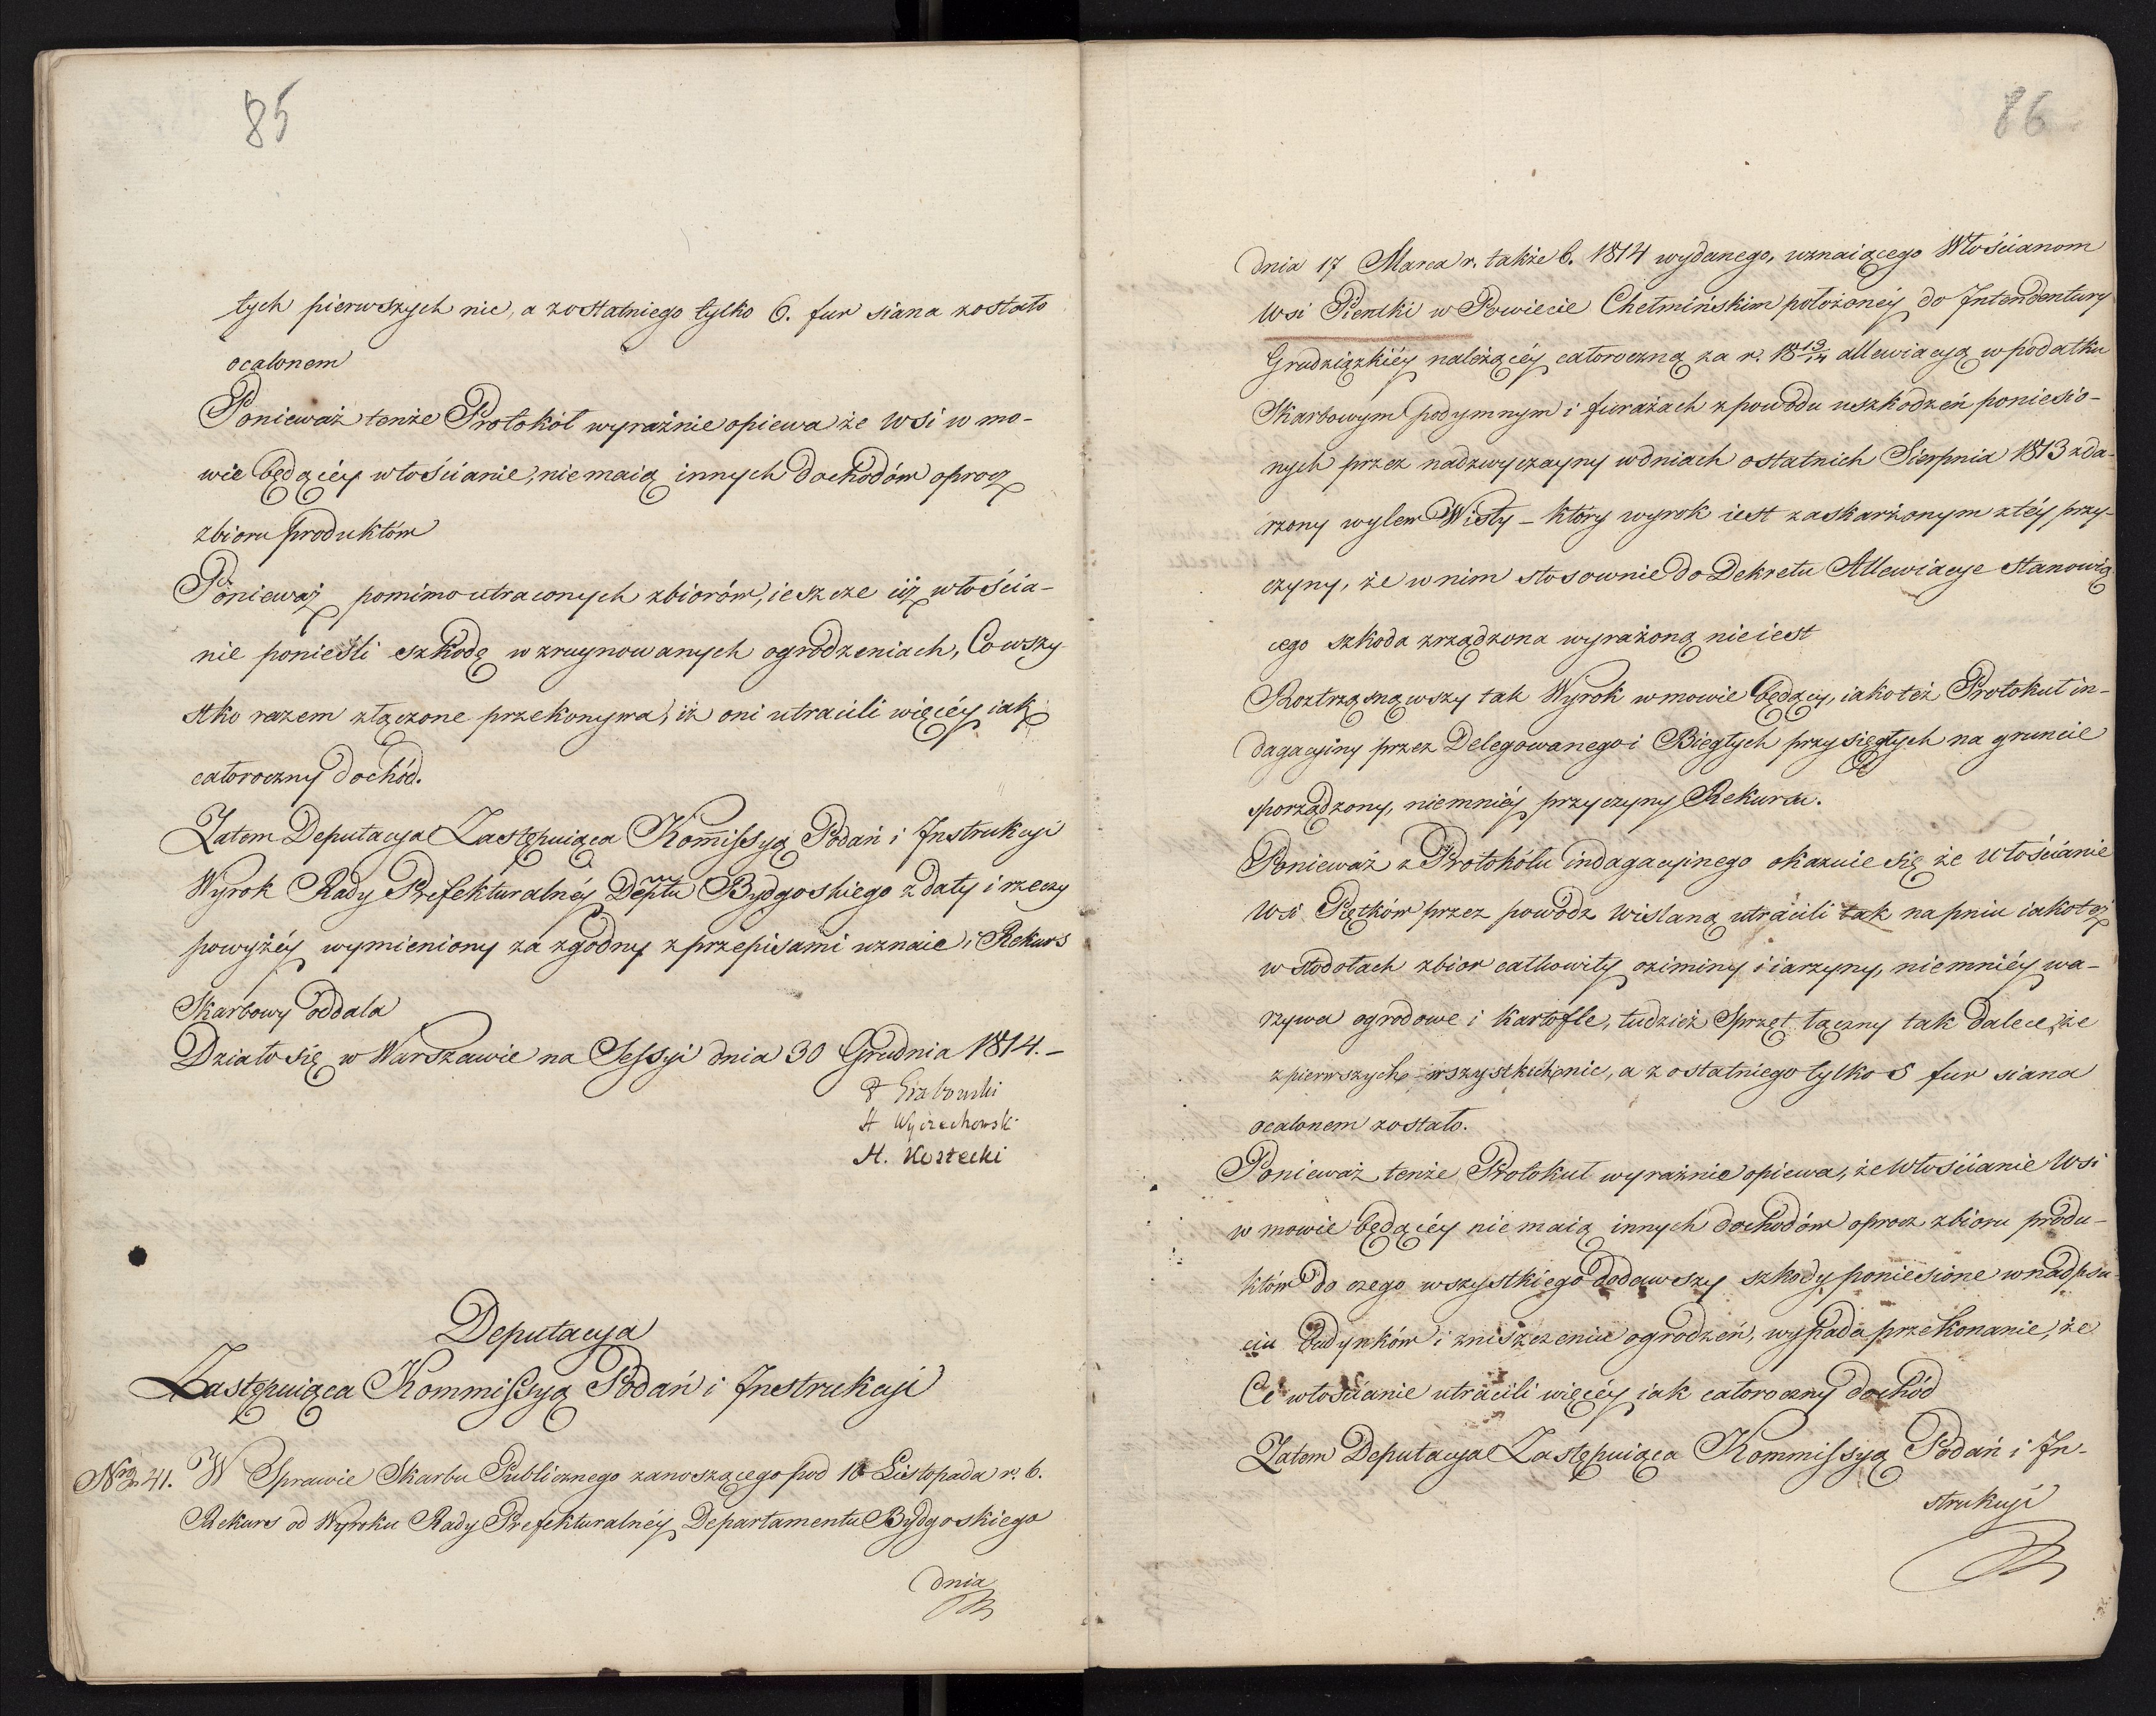 85
tych pierwszych nic, a zostatniego tylko 6. fur siana zostało
ocalonem
Ponieważ tenże Protokół wyraźnie opiewa że wsi w mo-
wie będącéy włościanie, nie maią innych dochodów oprocz
zbioru produktów
Ponieważ pomimo utraconych zbiorów, ieszcze iiż włościa-
nie ponieśli szkodę w zruynowanych ogrodzeniach, Co wszy-
stko razem złączone przekonywa, iż oni utracili więcéy iak
całoroczny dochód.
Zatem Deputacya Zastępuiąca Kom̃issyą Podań i Instrukcyi
Wyrok Rady Prefekturalnéy Dep̃tu Bydgoskiego z daty i rzeczy
powyżéy wymieniony za zgodny z przepisami uznaie, i Rekurs
Skarbowy oddala
Działo się w Warszawie na Sessyi dnia 30 Grudnia 1814. –
Grabowski
A Wyczechowski
A. Kostecki
Deputacya
Zastępuiąca Kommissyą Podań i Instrukcyi
Nro 41. W Sprawie Skarbu Publicznego zanoszącego pod 10 Listopada r. b.
Rekurs od Wyroku Rady Prefekturalnéy Departamentu Bydgoskiego
dnia
86
dnia 17 Marca r. także b. 1814 wydanego, uznaiącego Włościanom
Wsi Pienki w Powiecie Chełmińskim położonéy do Intendentury
Grudziązkiéy należącéy całoroczną za r. 18 13/14 allewiacyą w podatku
Skarbowym podymnym i furażach z powodu uszkodzeń poniesio-
nych przez nadzwyczayny w dniach ostatnich Sierpnia 1813 zda-
rzony wylew Wisły – który wyrok iest zaskarżonym z téy przy-
czyny, że w nim stosownie do Dekretu Allewiacye Stanowią
cego szkoda zrządzona wyrażoną nieiest
Roztrząsnąwszy tak Wyrok w mowie będący, iakoteż Protokuł in-
dagacyiny przez Delegowanego i Biegłych przysięgłych na gruncie
sporządzony, niemniéy przyczyny Rekursu.
Ponieważ z Protokółu indagacyinego okazuie się że włościanie
Wsi Piętków przez powodz wislaną utracili tak na pniu iakoteż
w stodołach zbior całkowity oziminy i iarzyny, niemniéy wa-
rzywa ogrodowe i kartofle, tudzież Sprzęt łączny tak dalece, że
z pierwszych wszystkich nic, a z ostatniego tylko 5 fur siana
ocalonem zostało.
Ponieważ tenże Protokuł wyraźnie opiewa, że Włościanie Wsi
w mowie będącéy nie maią innych dochodów oprocz zbioru produ-
któw do czego wszystkiego dodawszy szkody poniesione w nadpsu-
ciu budynków i zniszczeniu ogrodzeń, wypada przekonanie, że
Ci włościanie utracili więcéy iak całoroczny dochód
Zatem Deputacya Zastępuiąca Kommissyą Podań i In-
strukcyi